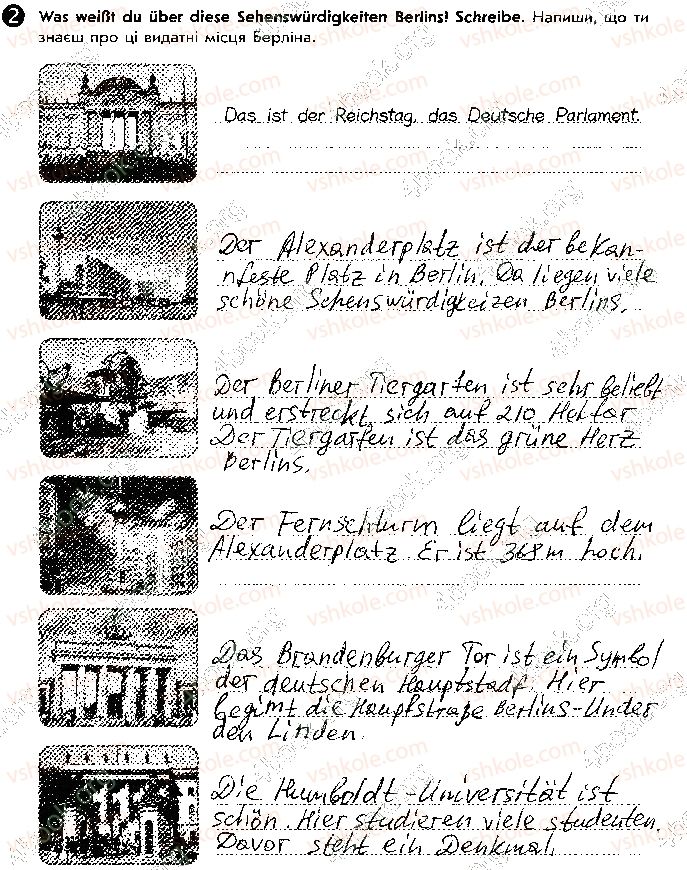 2 Was weißt du über diese Sehenswürdigkeiten Berlins? Schreibe. Напиши, що ти
знаєш про ці видатні місця Берліна.
Das ist der Reichstag, das Deutsche Parlament.
Der Alexanderplatz ist der bekan-
nfeste Platz in Berlin. Da liegen viele
schöne Sehenswürdigkeizen Berlins.
Der Berliner Tiergarten ist sehr beliebt
und erstreckt sich auf 210 Hektar
Der Tiergarten ist das grüne Herz
Berlins.
Der Fernschturm liegt auf dem
Alexanderplatz. Er ist 368 m hoch.
Das Brandenburger Tor ist ein Symbol
der deutschen Hauptstadt. Hier
begimt die Hauptstraße Berlins-Unter
den Linden.
Die Humboldt-Universität ist
schön. Hier studieren viele studenten.
Davor steht ein Denkmal.
vshkole.com
abook.org